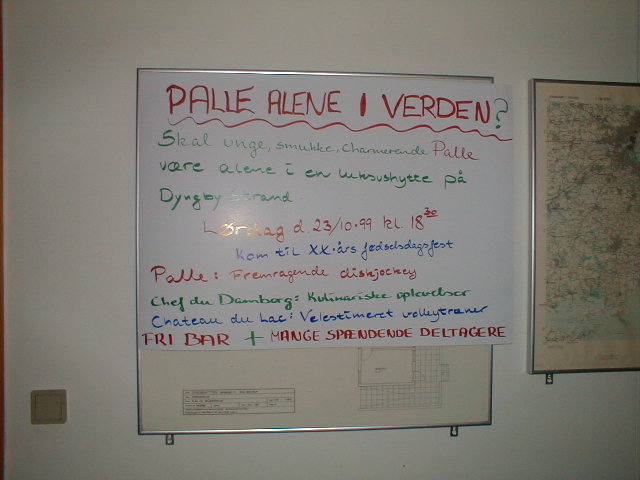 PALLE ALENE I VERDEN?
Skal unge, smukke, charmerende Palle
være alene i en luksushytte på
Dyngby Strand
Lørdag d. 23/10-99 kl. 18³⁰
Kom til XX-års fødselsdagsfest
Palle: Fremragende diskjockey
Chef du Damborg: Kulinariske oplevelser
Chateau du Lac: Velestimeret volleytræner
FRI BAR + MANGE SPÆNDENDE DELTAGERE